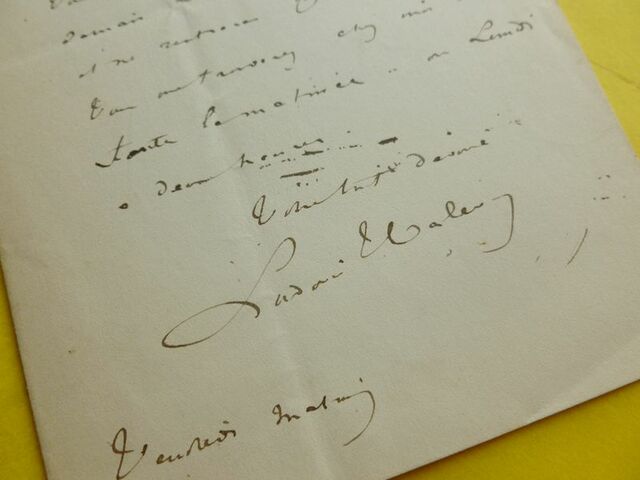 demain
et ne rentrerai
Vous me trouverez chez moi
toute la matinée ou Lundi
à deux heures
Votre dévoué
Ludovic Halévy
Vendredi matin